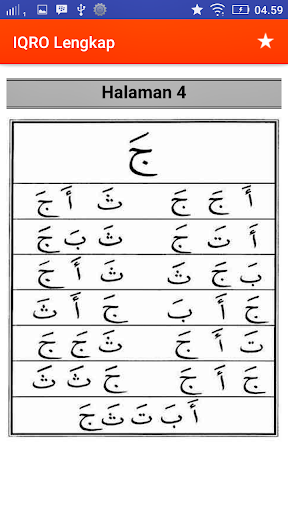 04.59
IQRO Lengkap
Halaman 4
جَ
أَ جَ جَ ثَ أَ جَ
أَ تَ جَ ثَ بَ جَ
بَ جَ ثَ ثَ أَ جَ
جَ أَ بَ جَ أَ ثَ
تَ أَ جَ ثَ جَ جَ
جَ أَ جَ جَ ثَ ثَ
أَ بَ تَ ثَ جَ